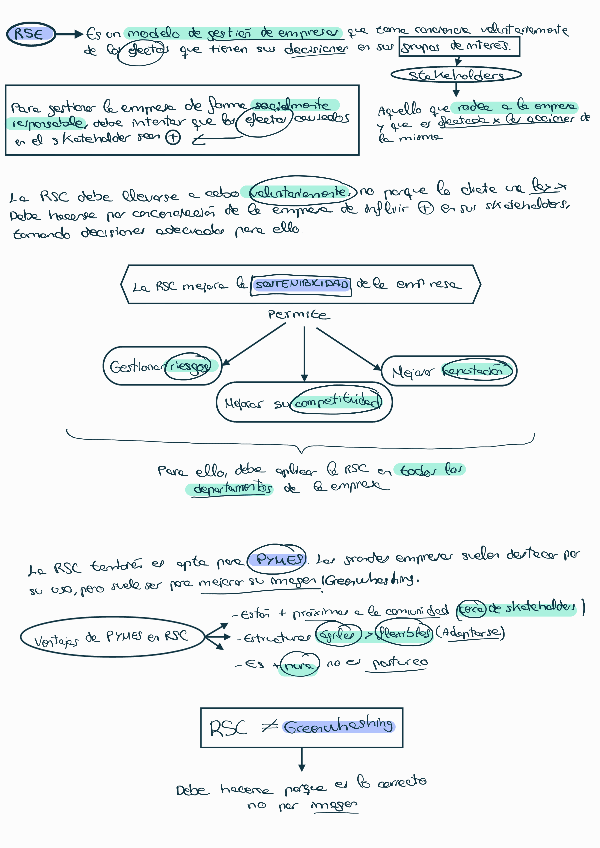 RSE → Es un modelo de gestión de empresas que toma conciencia voluntariamente
de los efectos que tienen sus decisiones en sus grupos de interés.
Stakeholders
Aquello que rodea a la empresa
y que es afectada x las acciones de
la misma
Para gestionar la empresa de forma socialmente
responsable, debe intentar que los efectos causados
en el skateholder sean +
La RSC debe llevarse a cabo voluntariamente, no porque lo dicte una ley
Debe hacerse por concienciación de la empresa de influir + en sus skateholders,
tomando decisiones adecuadas para ello
La RSC mejora la SOSTENIBILIDAD de la empresa
Permite
Gestionar riesgos
Mejorar reputación
Mejorar su competitividad
Para ello, debe aplicar la RSC en todos los
departamentos de la empresa
La RSC también es apta para PYMES. Las grandes empresas suelen destacar por
su uso, pero suele ser para mejorar su imagen (Greenwashing.
Ventajas de PYMES en RSC
- Están + próximas a la comunidad (cerca de skateholders)
- Estructuras ágiles y flexibles (Adaptarse)
- Es + pura no es postureo
RSC ≠ Greenwhashing
Debe hacerse porque es lo correcto
no por imagen